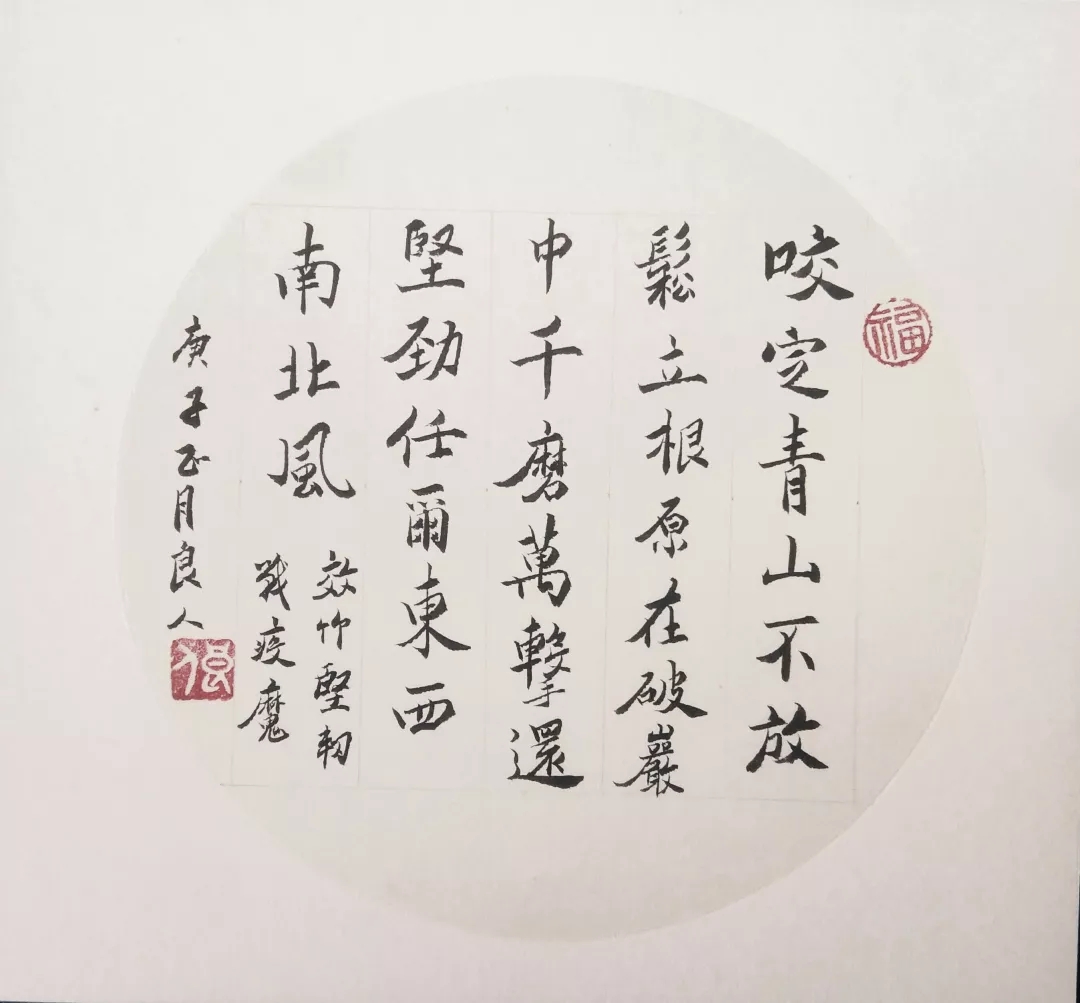 咬定青山不放
鬆立根原在破巖
中千磨萬擊還
堅劲任爾東西
南北風
效竹堅韧
戰疫魔
庚子正月良人
福